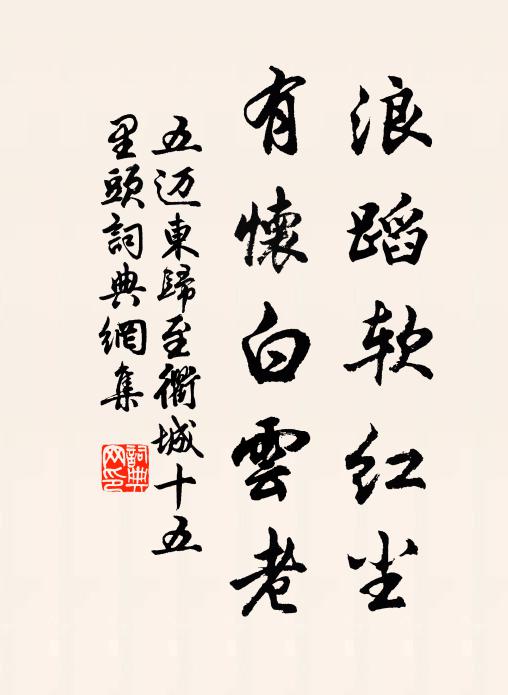 浪蹈软红尘
有懷白雲老
五迈東歸至衢城十五
里頭詞典網集
詞典网印